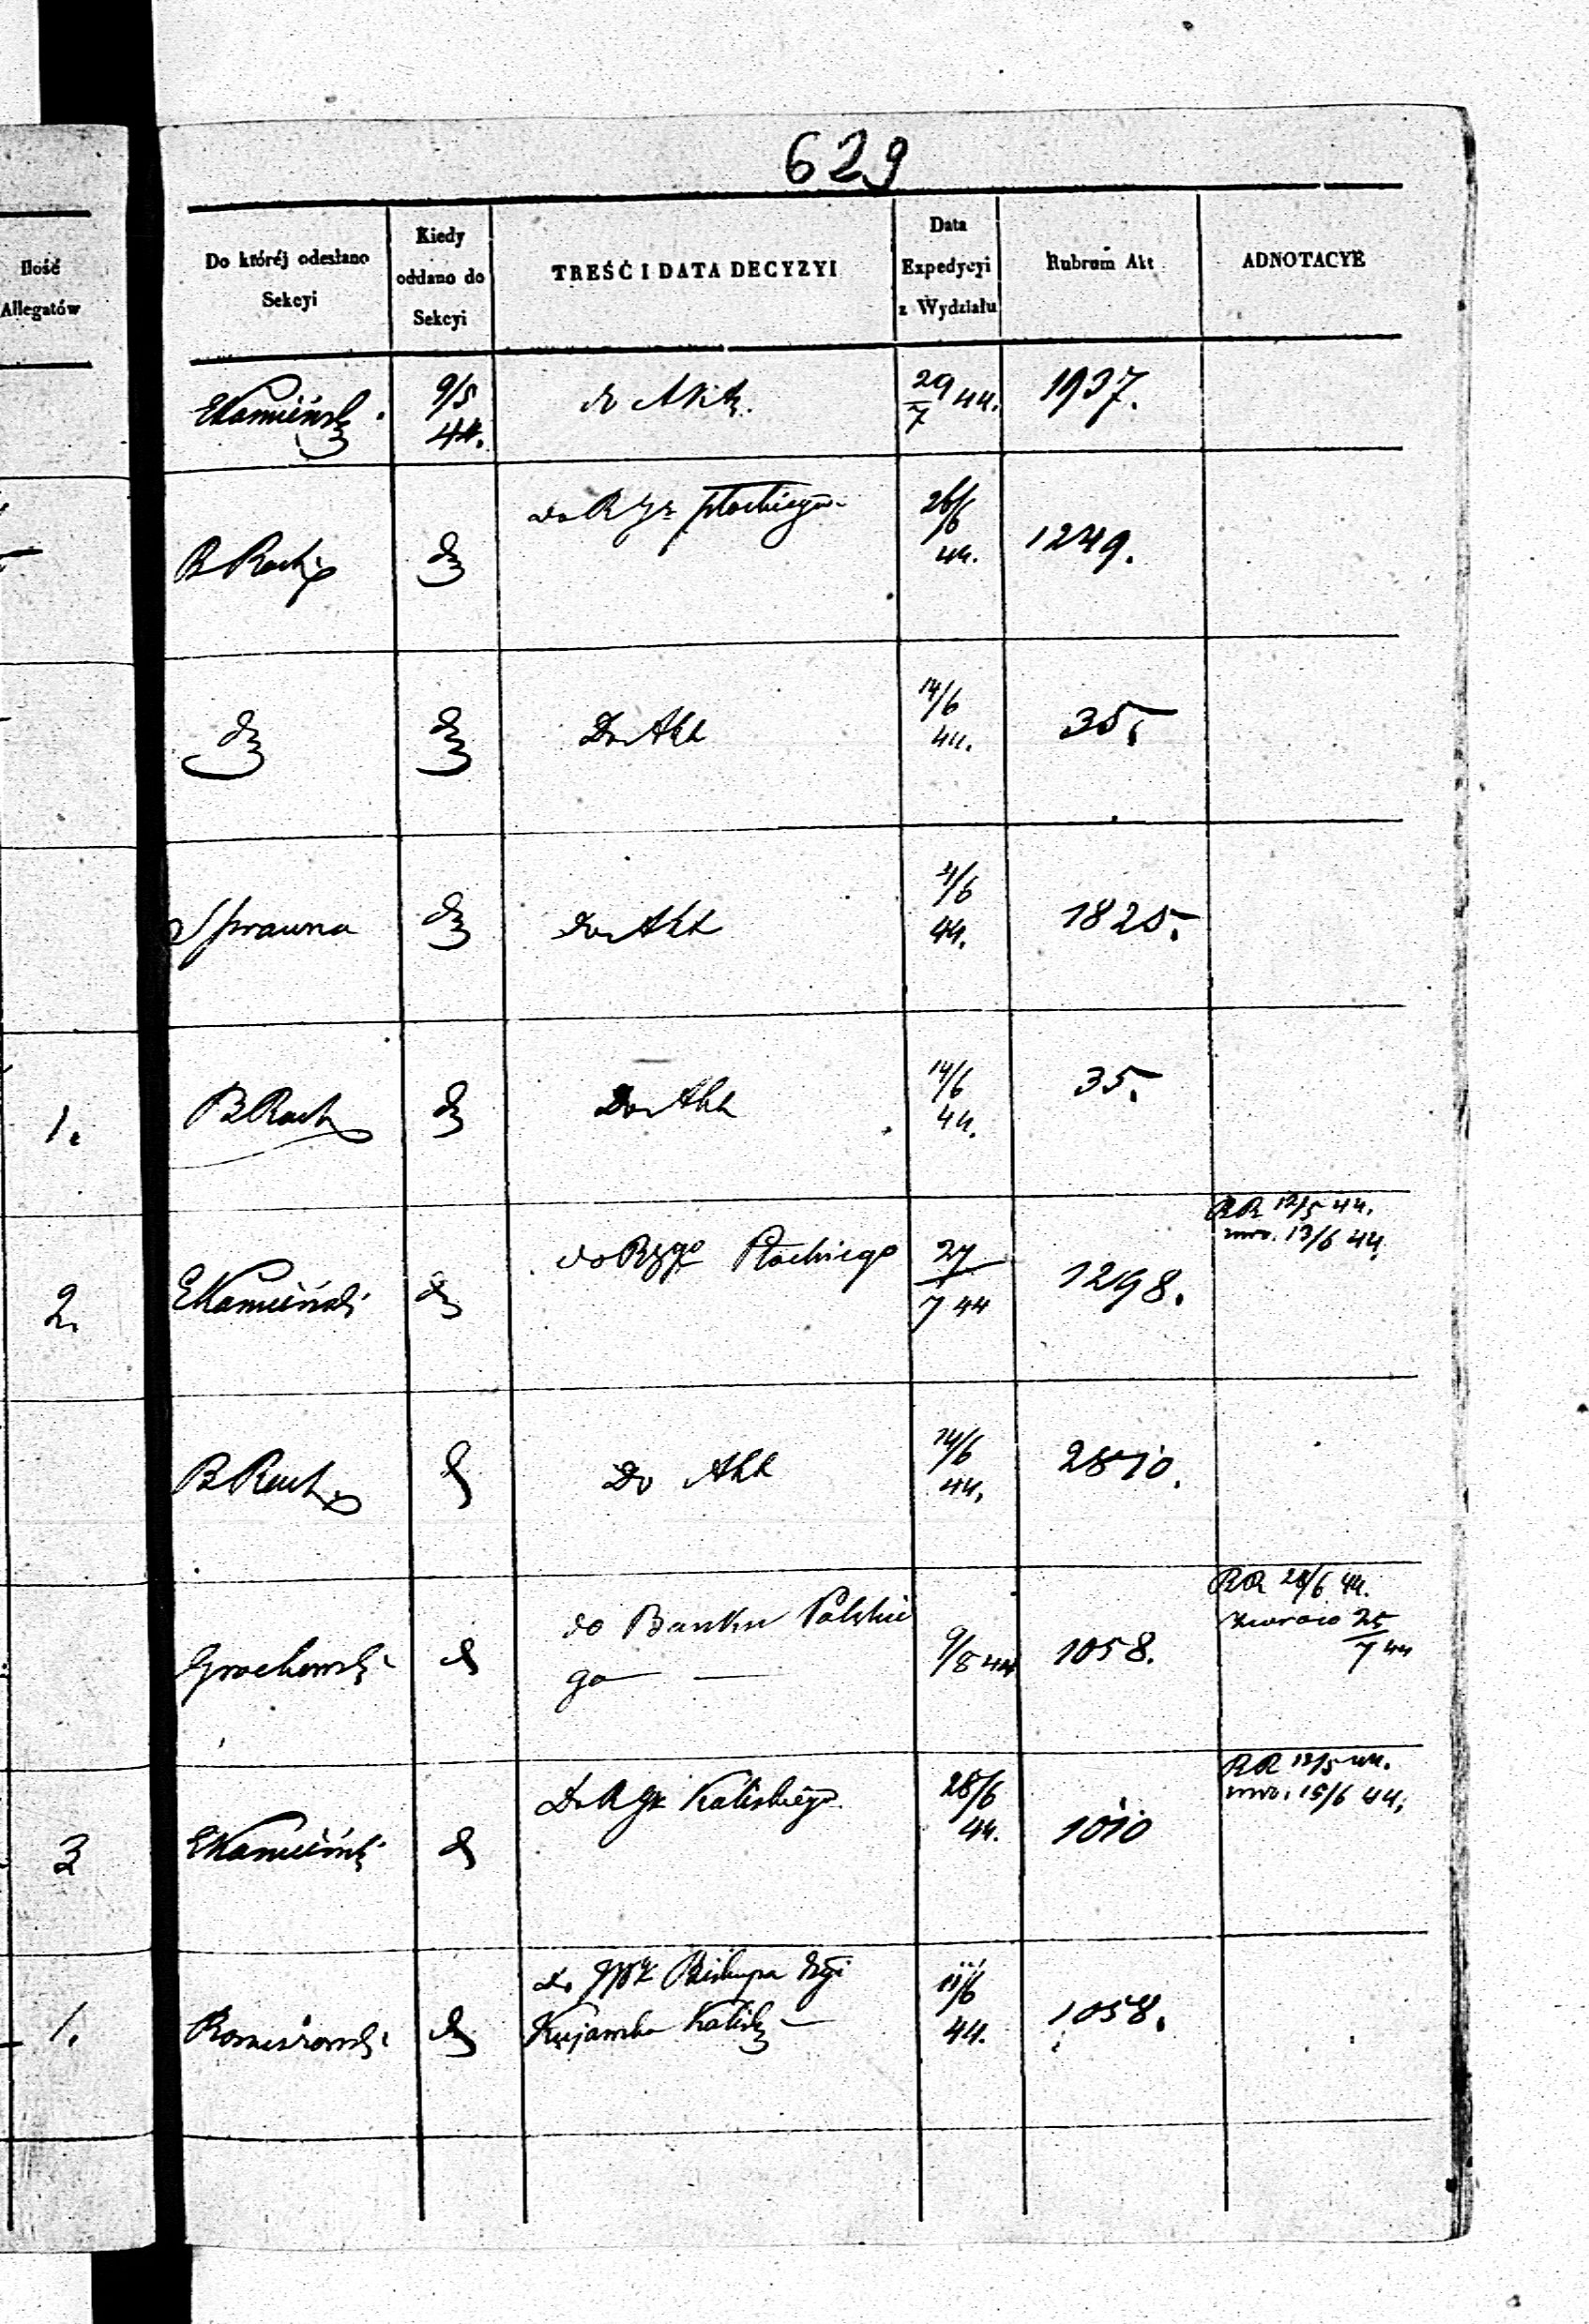 629
Ilość
Allegatów
Do któréj odesłano
Sekcyi
Kiedy
oddano do
Sekcyi
TREŚĆ I DATA DECYZYI
Data
Expedycyi
z Wydziału
Rubrum Akt
ADNOTACYE
EKamiński
9/5
44.
do
29
7 44.
1937.
B
do płockiego
26/6
44.
1249.
Do Akt
14/6
44.
35.
Sprawna
Do Akt
4/6
44.
1825.
1.
B
Do Akt
14/6
44.
35.
2.
EKamiński
do Rzgo Płockiego
27
7 44
1298.
RR 12/5 44.
13/6 44.
B
Do Akt
14/6
44.
2810.
Grochowski
do Banku Polskie
go
9/8 44
1058.
RR 28/6 44.
25
7 44
3
EKamiński
Do Kaliskiego
28/6
44.
1010
RR 12/5 44.
15/6 44.
1.
Biskupa
Kujawsko Kalisk
11/6
44.
1058.